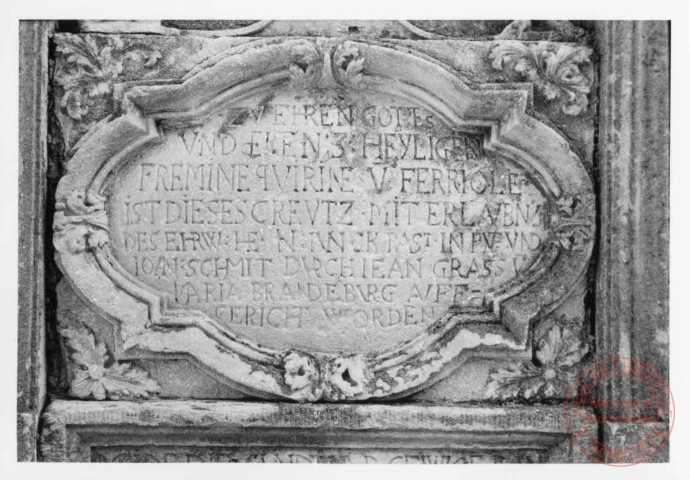 ZV EHREN GOTTES
VND DEREN 3 HEYLIGEN
FREMINE QVIRINE V FERRIOLE
IST DIESES CREVTZ MIT ERLAVBN
DES EHRW: HE: N: IVNCK PAST IN PVT VND
IOAN SCHMIT DVRCH IEAN GRASS V
MARIA BRANDEBVRG AVFF
GERICHT WORDEN